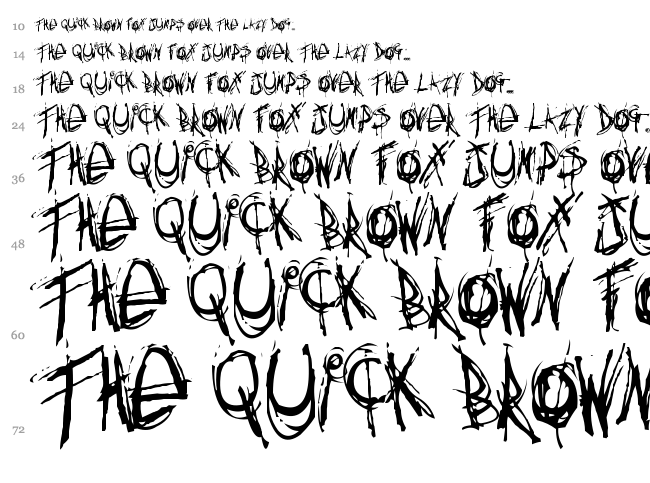 10 THE QUICK BROWN FOX JUMPS OVER THE LAZY DOG...
14 THE QUICK BROWN FOX JUMPS OVER THE LAZY DOG...
18 THE QUICK BROWN FOX JUMPS OVER THE LAZY DOG...
24 THE QUICK BROWN FOX JUMPS OVER THE LAZY DOG...
36 THE QUICK BROWN FOX JUMPS OV
48 THE QUICK BROWN FOX JU
60 THE QUICK BROWN FO
72 THE QUICK BROWN